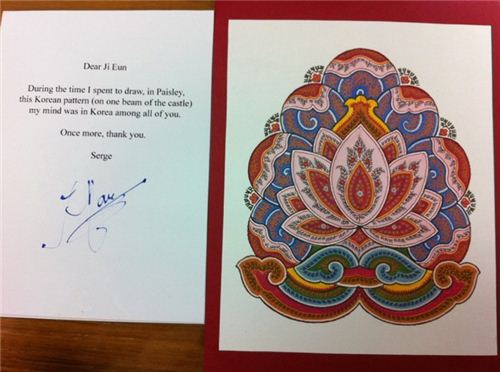 Dear Ji Eun
During the time I spent to draw, in Paisley,
this Korean pattern (on one beam of the castle)
my mind was in Korea among all of you.
Once more, thank you.
Serge